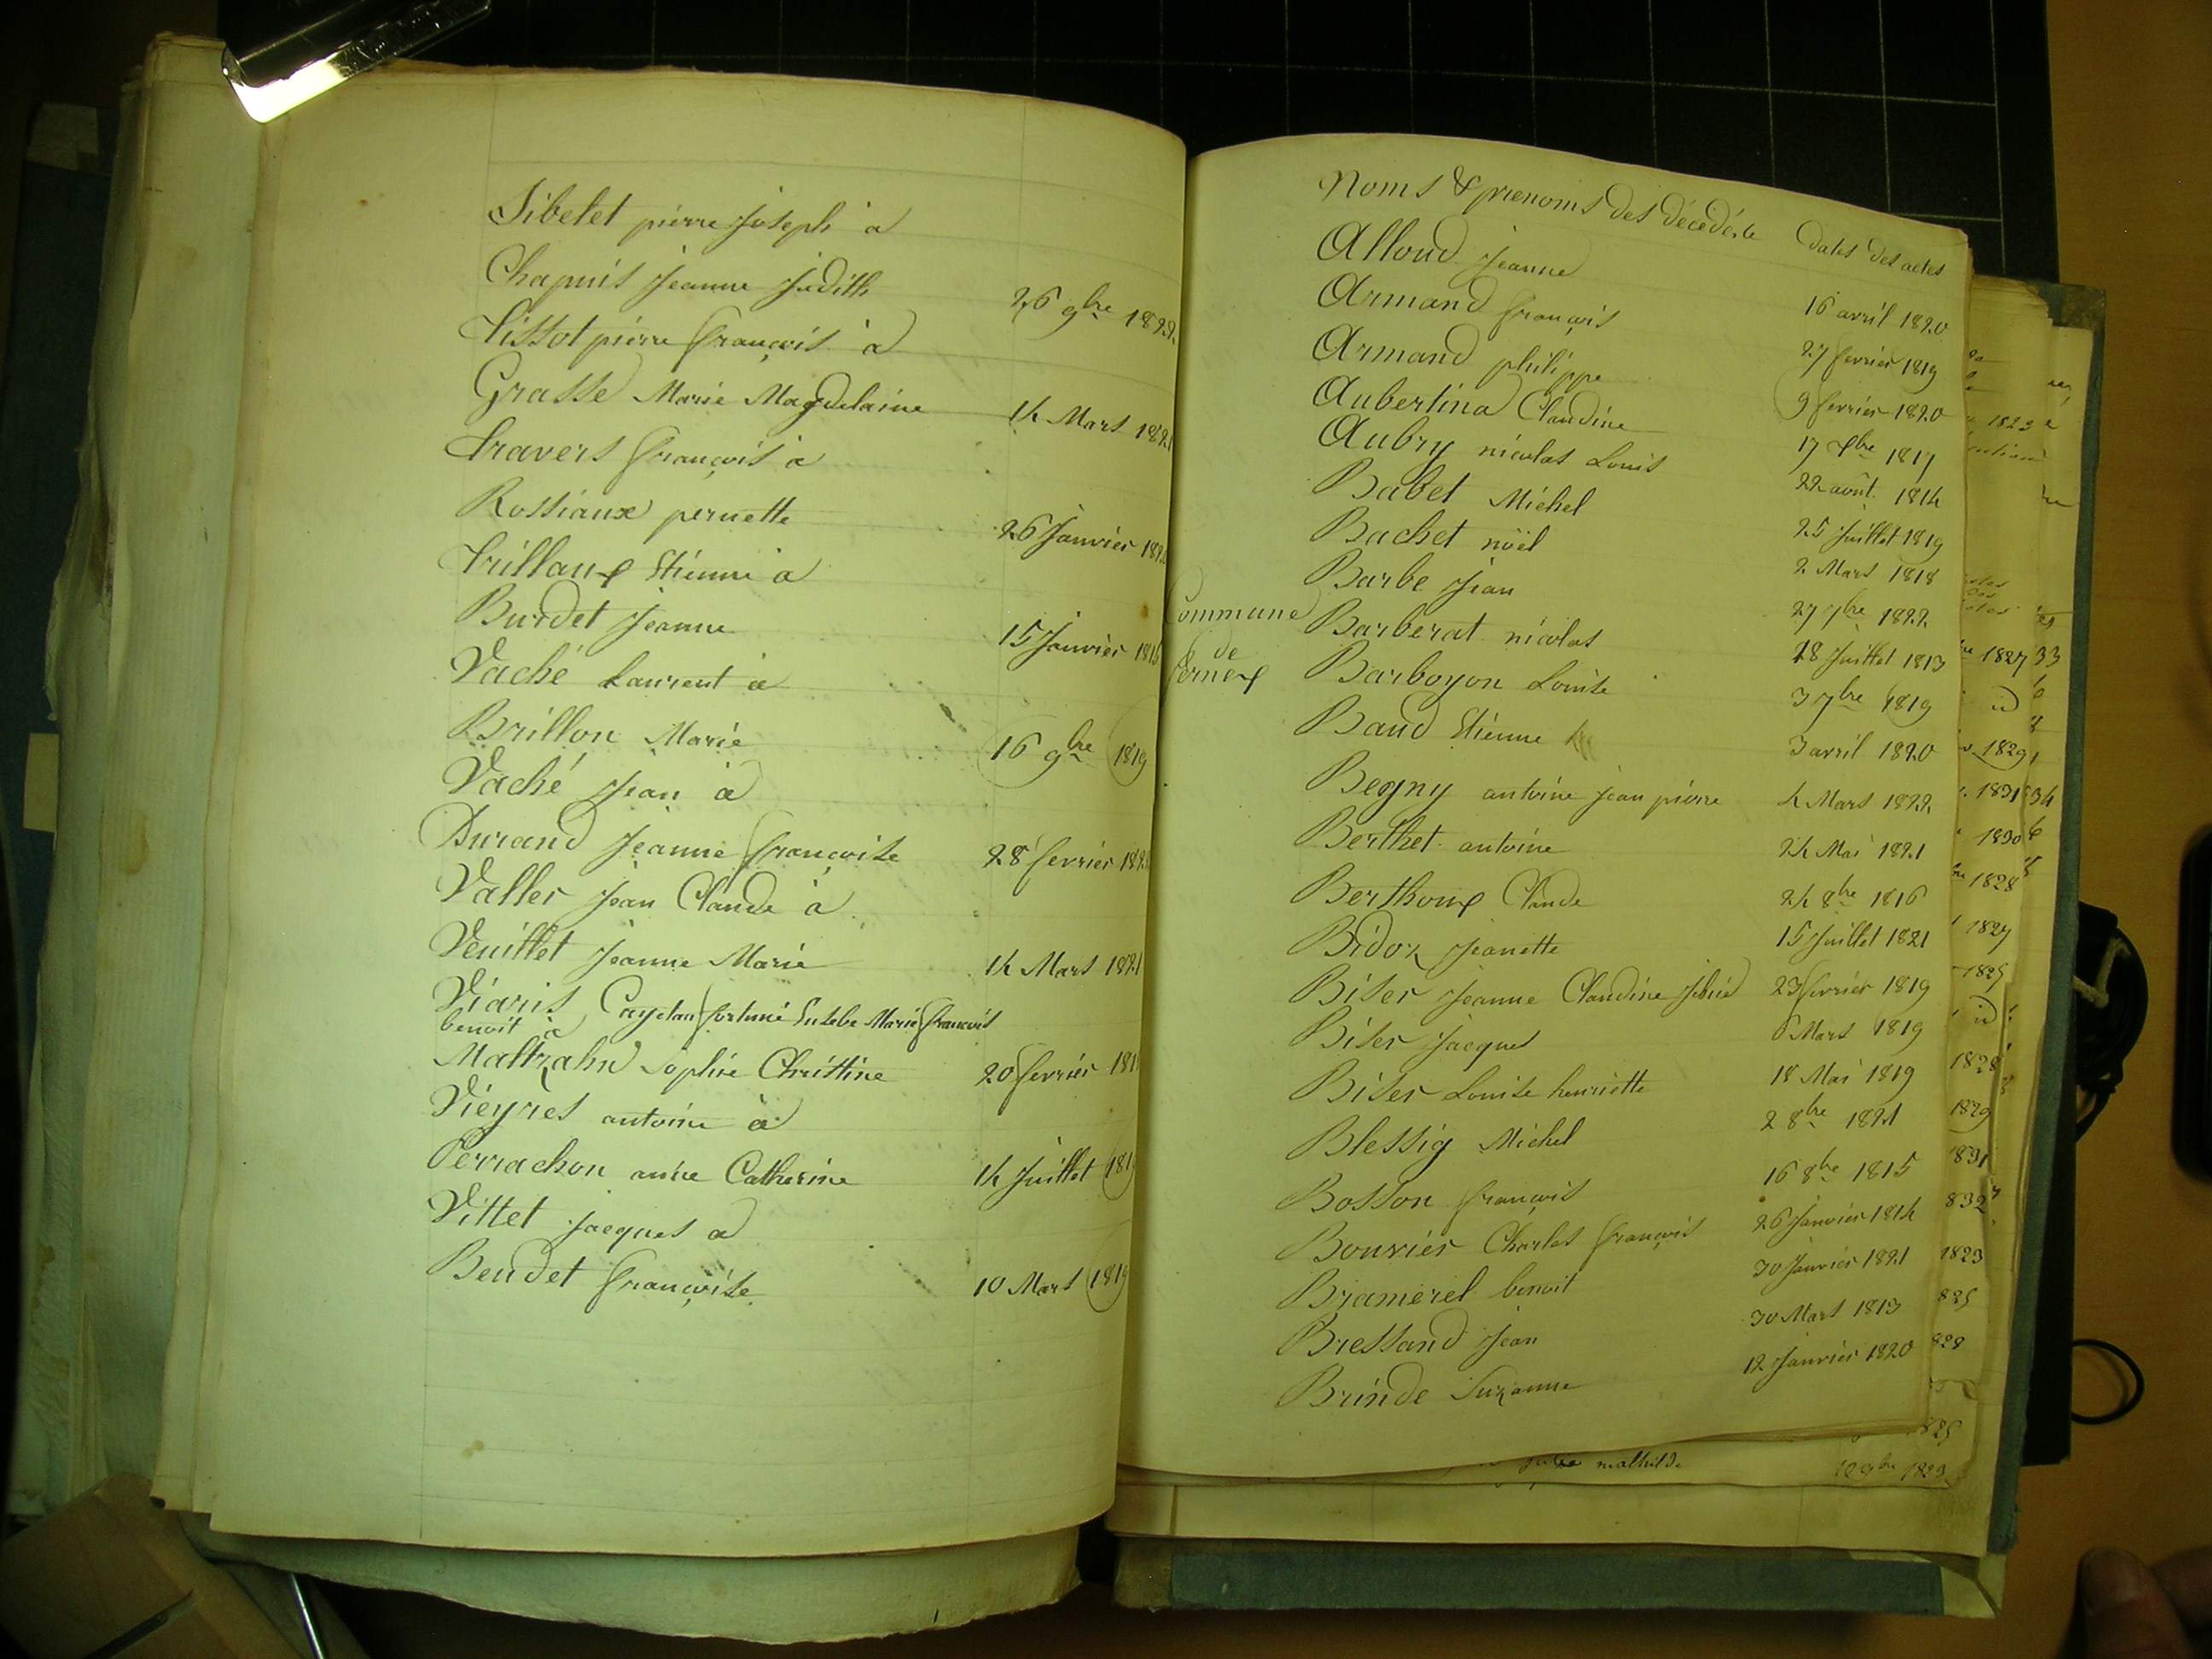 Sibelet pierre Joseph à
Chapuis Jeanne Judith 26 9bre 1822
Tissot pierre françois à
Grasse Marie Magdelaine 14 Mars 1821
Travers françois à
Rossiaux pernette 26 Janvier
Trillaux Etienne à
Burdet Jeanne 15 Janvier
Vaché Laurent à
Brillon Marie 16 9bre 1819
Vaché Jean à
Durand Jeanne françoise 28 fevrier
Valler Jean Claude à
Veuillet Jeanne Marie 14 Mars 1821
Viaris Cayetan fortuné Eusebe Marie françois
benoit à
Maltzahn Sophie Christine 20 fevrier
Vieyres antoine à
Perrachon anne Catherine 14 Juillet
Vittet Jacques à
Beudet françoise 10 Mars 1819
Commune
de
fernex
Noms & prenoms des décédés Dates des actes
Alloud Jeanne 16 avril 1820
Armand françois 27 fevrier 1819
Armand philippe 9 fevrier 1820
Aubertina Claudine 17 Xbre 1817
Aubry nicolas Louis 22 août 1814
Babet Michel 25 Juillet 1819
Bachet noël 2 Mars 1818
Barbe Jean 27 7bre 1822
Barberat nicolas 28 Juillet 1813
Barboyon Louise 3 7bre 1819
Baud Etienne 3 avril 1820
Begny antoine Jean pierre 4 Mars 1822
Berthet antoine 24 Mai 1821
Berthoux Claude 24 8bre 1816
Bidoz Jeanette 15 Juillet 1821
Biser Jeanne Claudine Silvie 23 fevrier 1819
Biser Jacques 6 Mars 1819
Biser Louise henriette 18 Mai 1819
Blessig Michel 2 8bre 1821
Bosson françois 16 8bre 1815
Bouvier Charles françois 26 Janvier 1814
Bramerel benoit 30 Janvier 1821
Bressand Jean 30 Mars 1813
Brinde Suzanne 12 Janvier 1820
1823
1827 33
id
1829
1831 34
1830
1828
1827
1825
id
1828
1829
1831
832
1823
825
828
825
mathilde